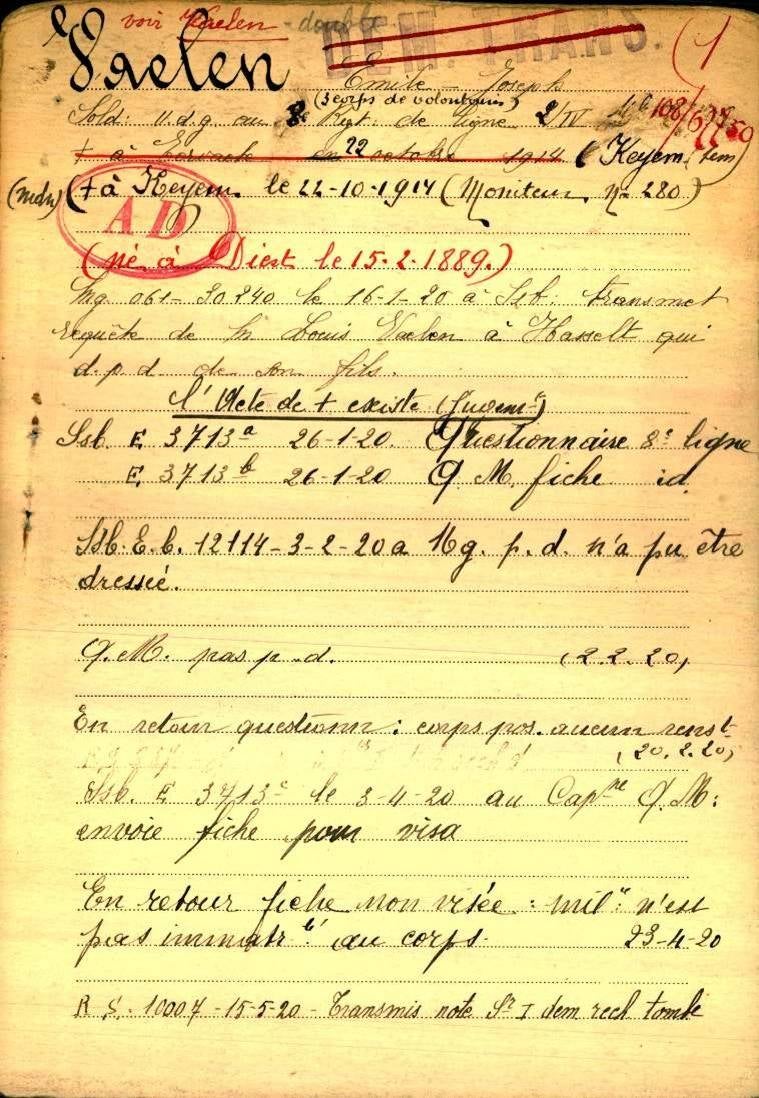 voir Vaelen - double
DEM. TRANS.
(1
Vaelen Emile - Joseph
(3 corps de volontaires)
Sold: v.d.g. au 8e Rgt: de ligne 2/IV
+ à en 22 octobre 1914 (Keyem. tem)
(mdn) (+ à Keyem. le 22-10-1914 (Moniteur n- 280)
AD
(né à Diest le 15.2.1889.)
Mg 061- 30240 le 16-1-20 à Ssb: transmet
requête de Mr Louis Vaelen à Hasselt qui
d.p.d. de son fils.
l'Acte de + existe (Jugemt)
Ssb. E 3713a 26-1-20. Questionnaire 8e ligne
E 3713b 26-1-20 Q M. fiche id
Ssb. E.b. 12114-3-2-20 a Mg. p.d. n'a pu être
dressé.
Q.M. pas p.d. (2.2.20)
En retour questionn: corps pos. aucun renst
(20.2.20)
Ssb. E 3713c le 3-4-20 au Capne Q.M:
envoie fiche pour visa
En retour fiche non visée: milre n'est
pas immatrlé au corps. 23-4-20
R S. 10007-15-5-20- Transmis note Sr I dem rech tombe